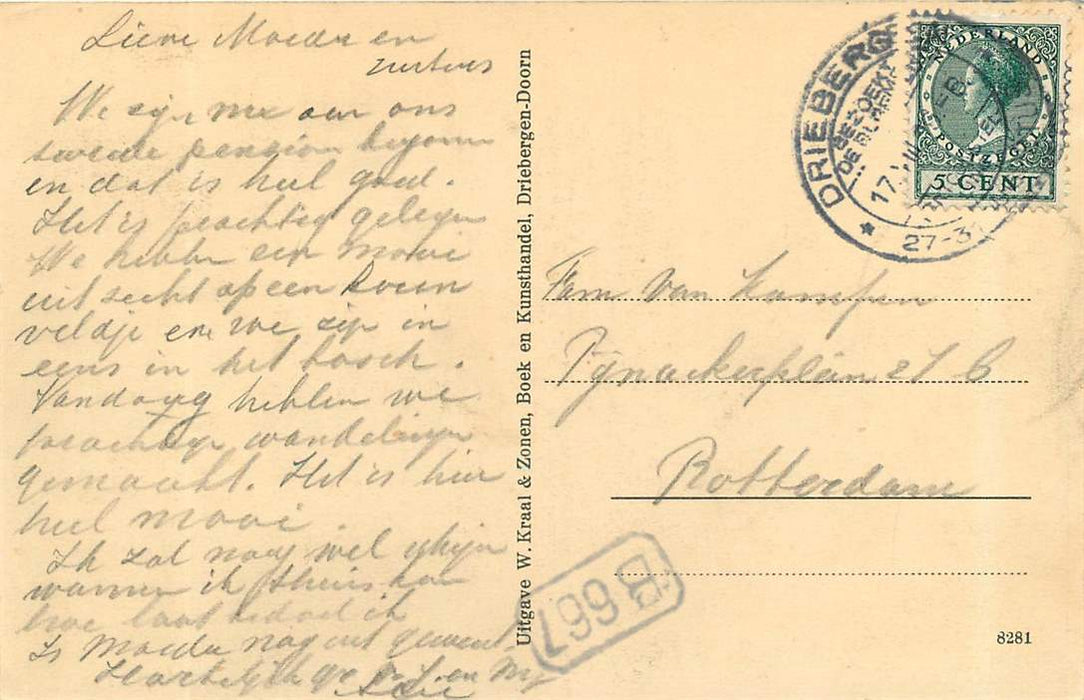 Lieve Moeder en
zusters
We zijn nu aan ons
tweede pension begonnen
en dat is heel goed.
Het is prachtig gelegen
We hebben een mooi
uitzicht op een
veldje en we zijn in
eens in het bosch.
Vandaag hebben we
prachtige wandelingen
gemaakt. Het is hier
heel mooi.
Ik zal nog wel schrijven
wanneer ik thuis kom
hoe laat bedoel ik
Is Moeder nog uit geweest
Hartelijk en
Uitgave W. Kraal & Zonen, Boek en Kunsthandel, Driebergen-Doorn
DRIEBERG
BEZOEKT
DE BLOEM
17
27-3
NEDERLAND
POSTZEGEL
5 CENT
Fam van Kampen
Pijnackerplein 21 b
Rotterdam
B667
8281